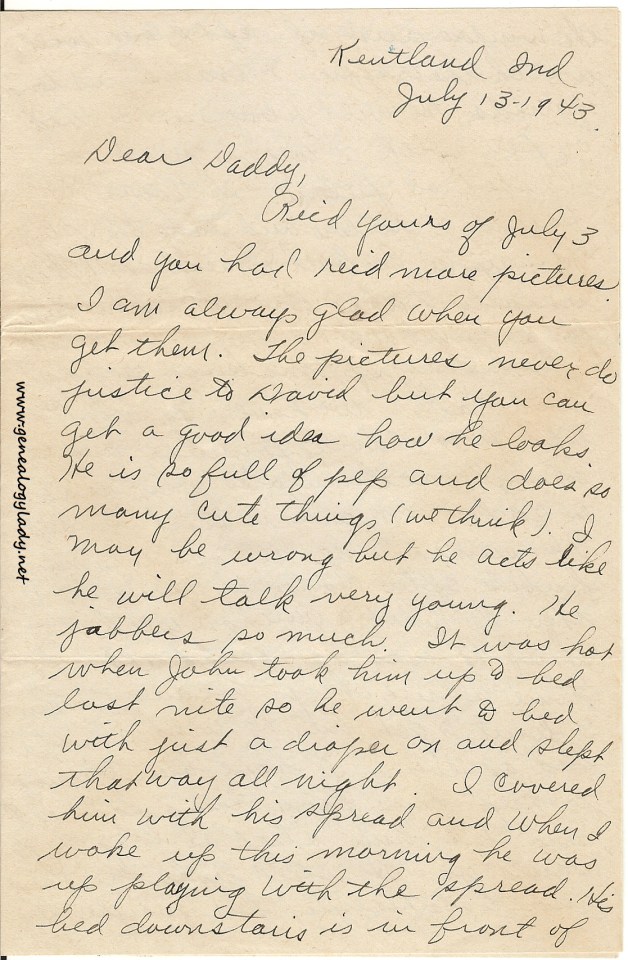 Kentland Ind
July 13-1943.
Dear Daddy,
Rec'd yours of July 3
and you had rec'd more pictures.
I am always glad when you
get them. The pictures never do
justice to David but you can
get a good idea how he looks.
He is so full of pep and does so
many cute things (we think). I
may be wrong but he acts like
he will talk very young. He
jabbers so much. It was hot
when John took him up to bed
last nite so he went to bed
with just a diaper on and slept
that way all night. I covered
him with his spread and when I
woke up this morning he was
up playing with the spread. His
bed downstairs is in front of
www.genealogylady.net